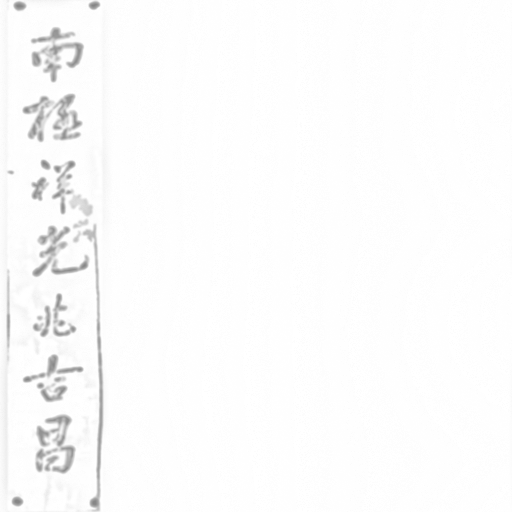 南極祥光兆古昌